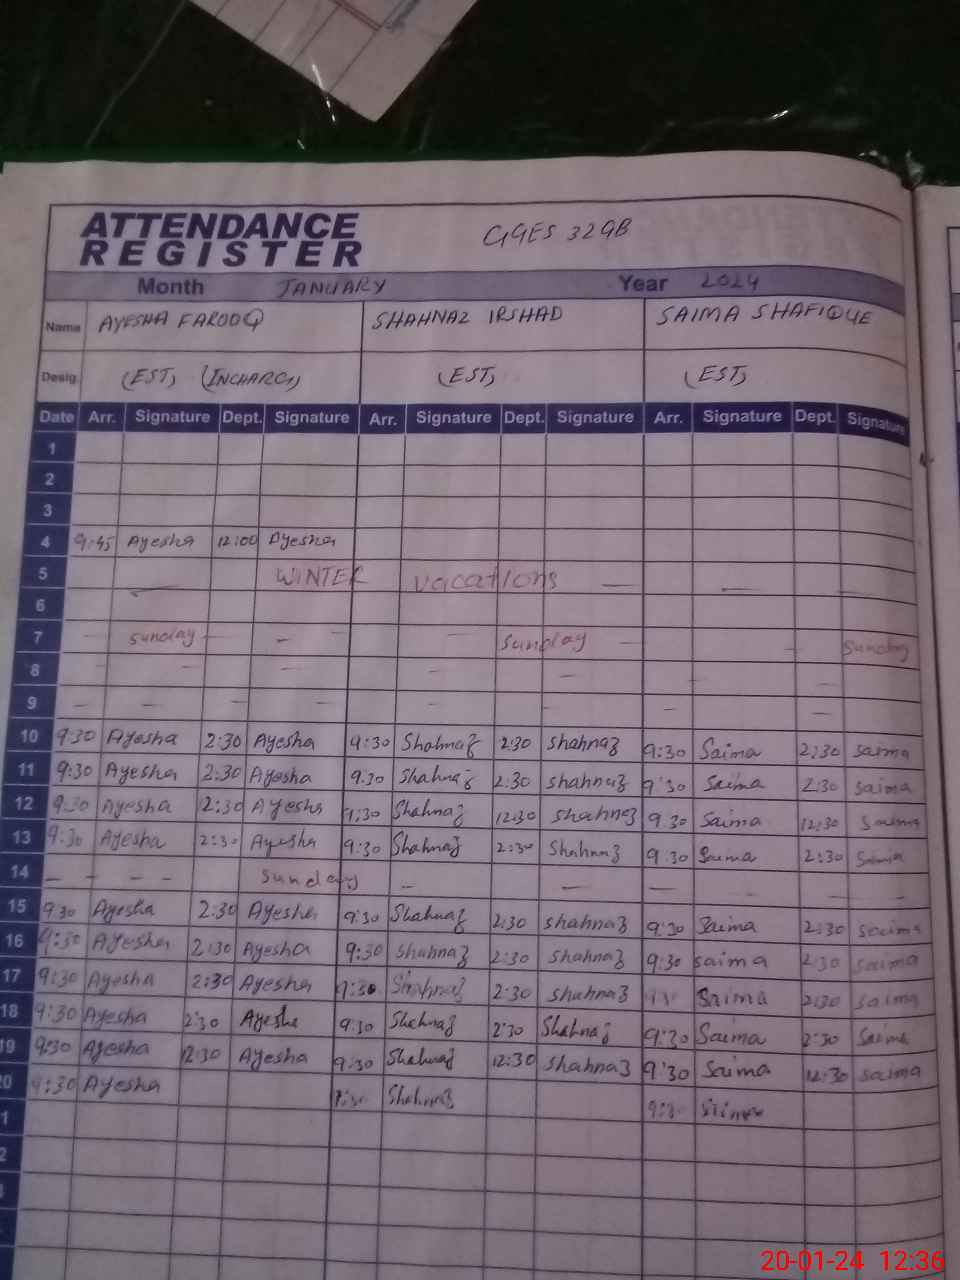 ATTENDANCE
REGISTER
GGES 32GB
Month JANUARY Year 2024
Name AYESHA FAROOQ SHAHNAZ IRSHAD SAIMA SHAFIQUE
Desig. (EST) (INCHARG) (EST) (EST)
Date Arr. Signature Dept. Signature Arr. Signature Dept. Signature Arr. Signature Dept. Signature
1
2
3
4 9:45 Ayesha 12:00 Ayesha
5 WINTER vacations
6
7 sunday sunday sunday
8
9
10 9:30 Ayesha 2:30 Ayesha 9:30 Shahnaz 2:30 shahnaz 9:30 Saima 2:30 saima
11 9:30 Ayesha 2:30 Ayesha 9:30 Shahnaz 2:30 shahnaz 9:30 Saima 2:30 saima
12 9:30 Ayesha 12:30 Ayesha 9:30 Shahnaz 12:30 shahnaz 9:30 Saima 12:30 Saima
13 9:30 Ayesha 2:30 Ayesha 9:30 Shahnaz 2:30 Shahnaz 9:30 Saima 2:30 Saima
14 sunday
15 9:30 Ayesha 2:30 Ayesha 9:30 Shahnaz 2:30 shahnaz 9:30 Saima 2:30 saima
16 9:30 Ayesha 2:30 Ayesha 9:30 shahnaz 2:30 shahnaz 9:30 saima 2:30 saima
17 9:30 Ayesha 2:30 Ayesha 9:30 Shahnaz 2:30 shahnaz Saima 2:30 saima
18 9:30 Ayesha 2:30 Ayesha 9:30 Shahnaz 2:30 Shahnaz 9:30 Saima 2:30 Saima
19 9:30 Ayesha 12:30 Ayesha 9:30 Shahnaz 12:30 shahnaz 9:30 Saima 12:30 saima
20 9:30 Ayesha 9:30 Shahnaz 9:30 Saima
20-01-24 12:36